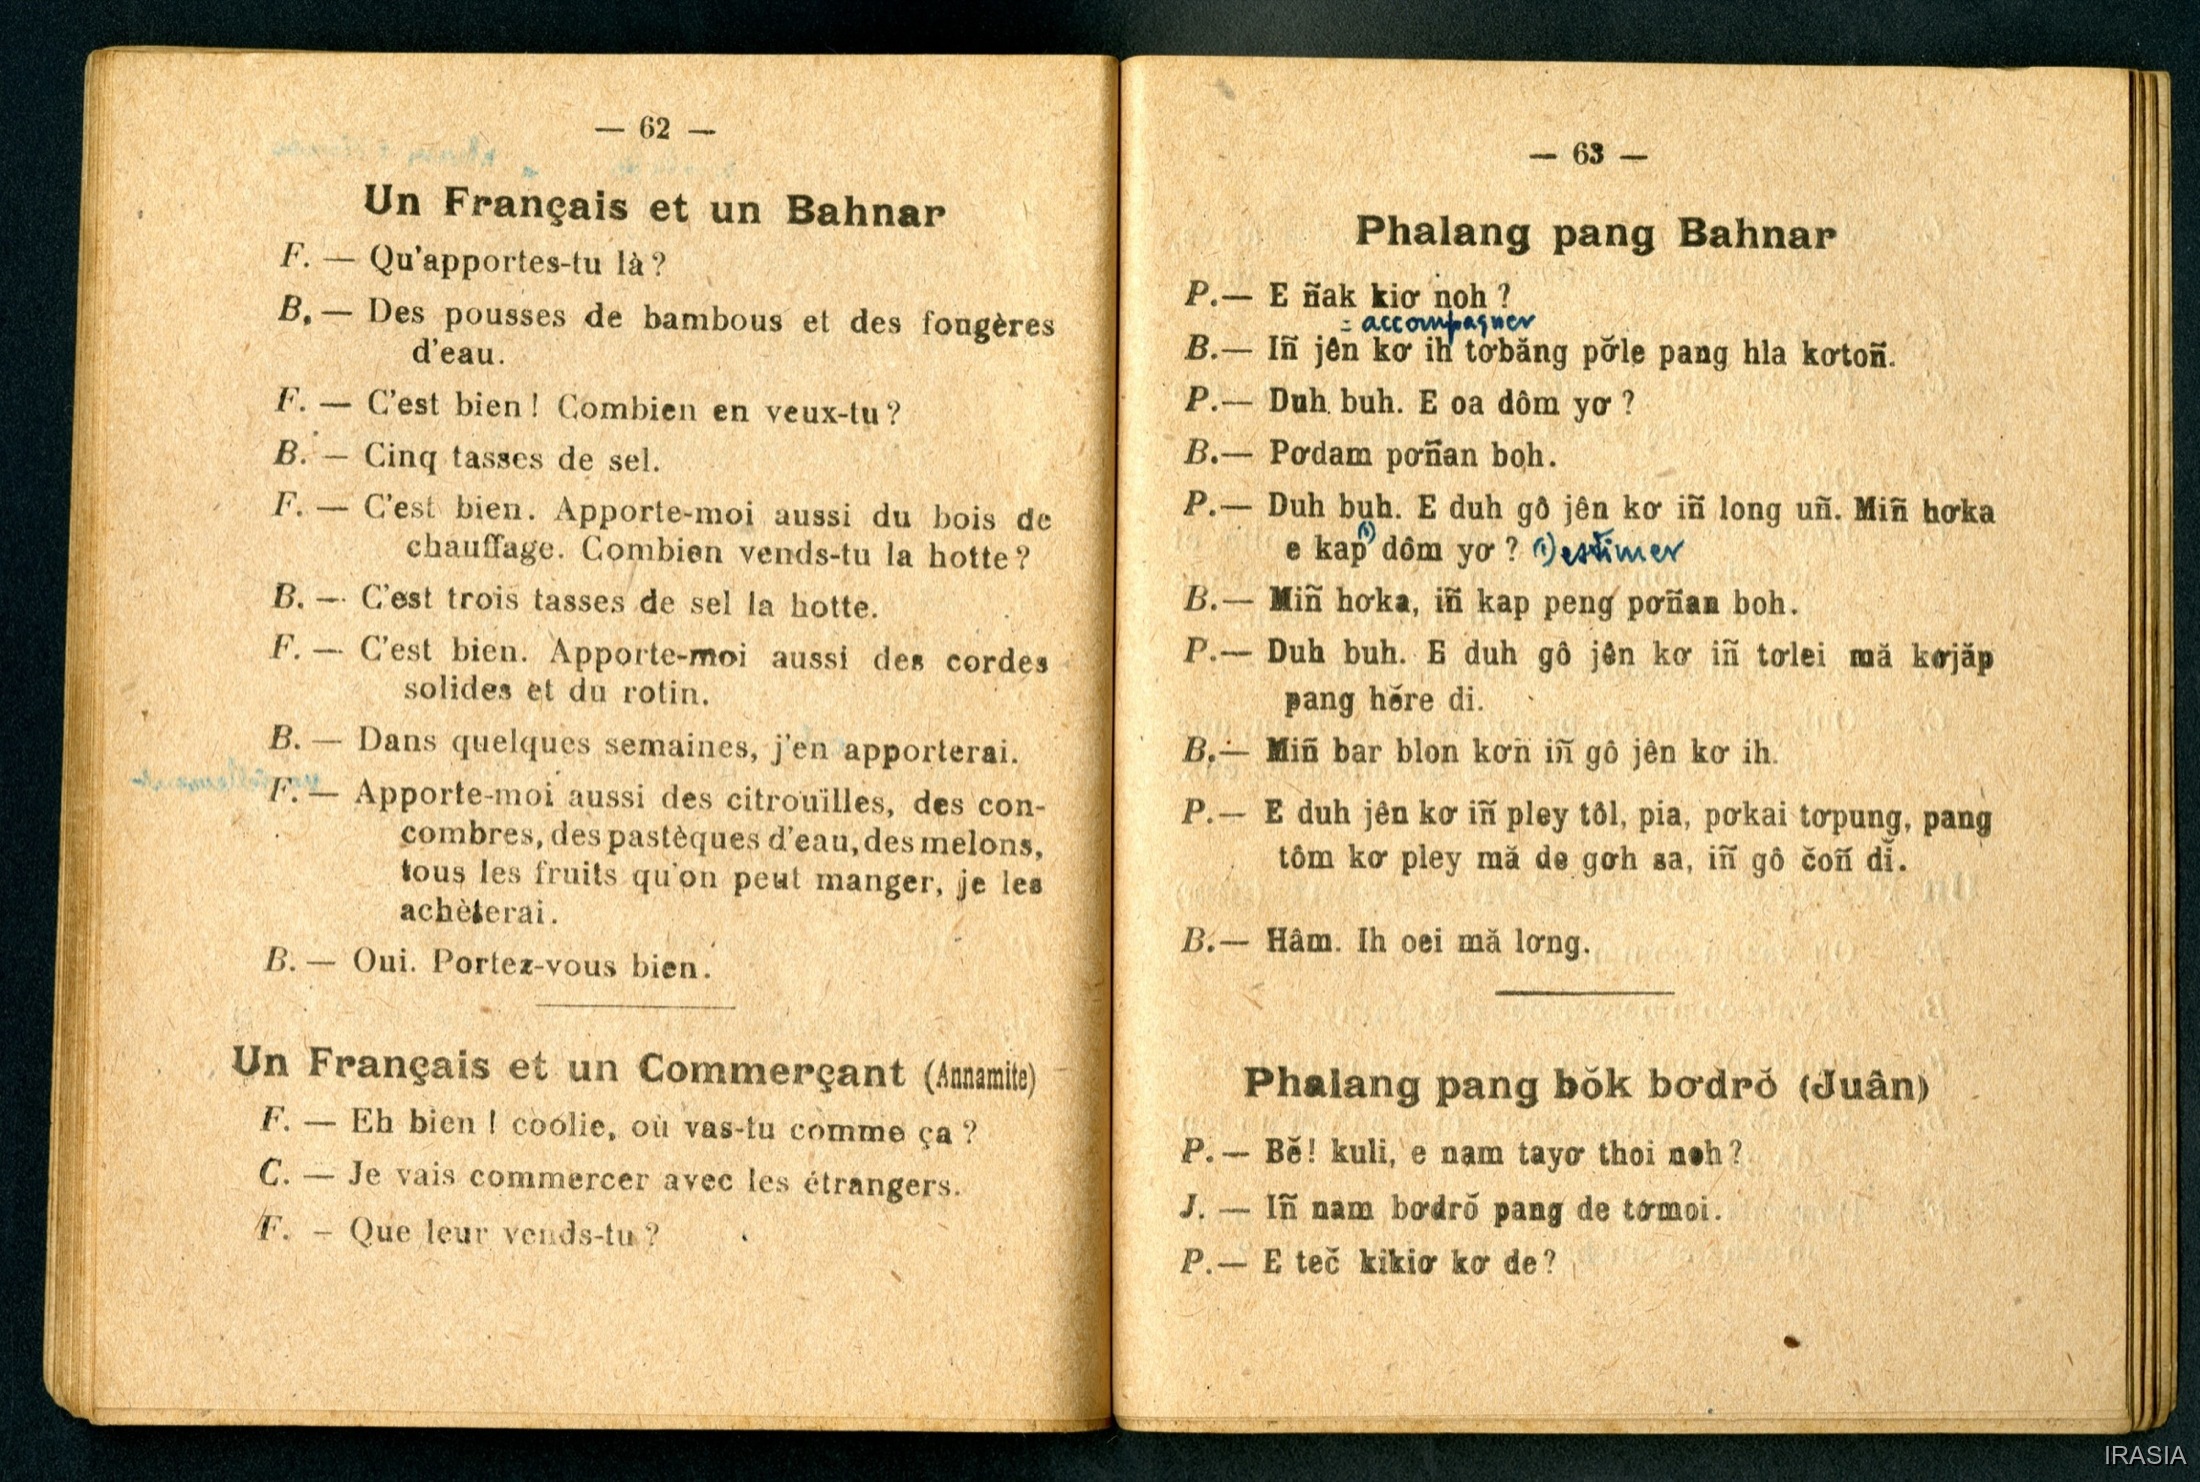 — 62 —
Un Français et un Bahnar
F. — Qu'apportes-tu là ?
B. — Des pousses de bambous et des fougères
d'eau.
F. — C'est bien ! Combien en veux-tu ?
B. — Cinq tasses de sel.
F. — C'est bien. Apporte-moi aussi du bois de
chauffage. Combien vends-tu la hotte ?
B. — C'est trois tasses de sel la hotte.
F. — C'est bien. Apporte-moi aussi des cordes
solides et du rotin.
B. — Dans quelques semaines, j'en apporterai.
F. — Apporte-moi aussi des citrouilles, des con-
combres, des pastèques d'eau, des melons,
tous les fruits qu'on peut manger, je les
achèterai.
B. — Oui. Portez-vous bien.
Un Français et un Commerçant (Annamite)
F. — Eh bien ! coolie, où vas-tu comme ça ?
C. — Je vais commercer avec les étrangers.
F. — Que leur vends-tu ?
— 63 —
Phalang pang Bahnar
P. — E ñak kiơ noh ?
= accompagner
B. — Iñ jên kơ ih tơbăng pơ̆le pang hla kơtoñ.
P. — Duh buh. E oa dôm yơ ?
B. — Pơdam pơñan boh.
P. — Duh buh. E duh gô jên kơ iñ long uñ. Miñ hơka
e kap (1) dôm yơ ? (1) estimer
B. — Miñ hơka, iñ kap peng pơñan boh.
P. — Duh buh. E duh gô jên kơ iñ tơlei mă kơjăp
pang hĕre di.
B. — Miñ bar blon kơn iñ gô jên kơ ih.
P. — E duh jên kơ iñ pley tôl, pia, pơkai tơpung, pang
tôm kơ pley mă de gơh sa, iñ gô čoñ dĭ.
B. — Hâm. Ih oei mă lơng.
Phalang pang bŏk bơdrŏ (Juân)
P. — Bĕ ! kuli, e nam tayơ thoi noh ?
J. — Iñ nam bơdrŏ pang de tơmoi.
P. — E teč kikiơ kơ de ?
IRASIA